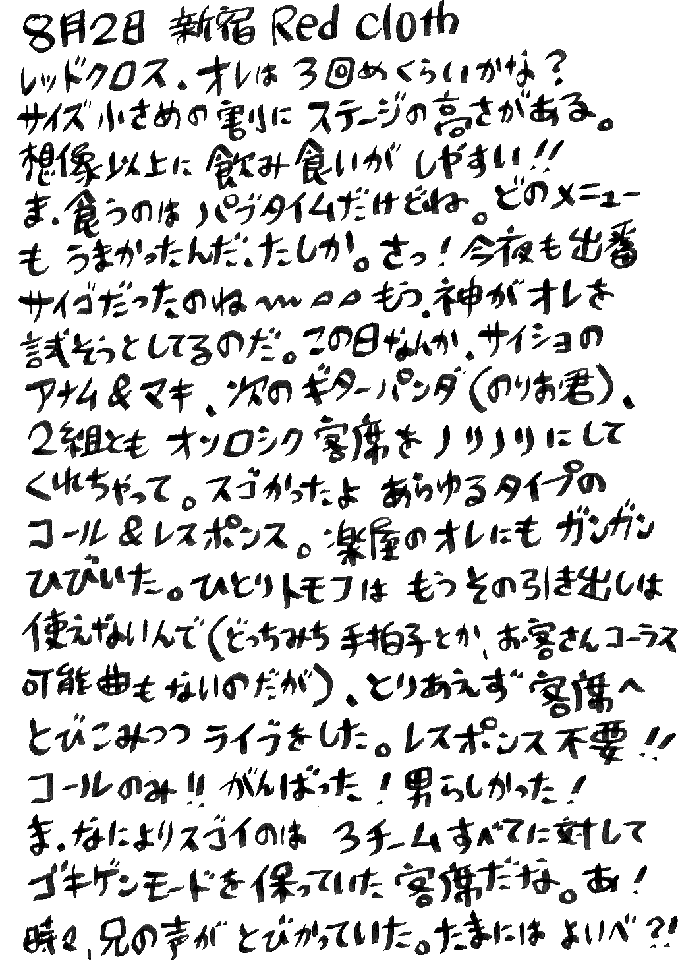 8月2日 新宿 Red cloth
レッドクロス、オレは 3回めくらいかな?
サイズ 小さめの 割に ステージの高さがある。
想像以上に 飲み食いが しやすい!!
ま、食うのは パブタイムだけどね。どのメニュー
も うまかったんだ、たしか。さっ! 今夜も出番
サイゴだったのね〜〜 もう、神がオレを
試そうとしてるのだ。この日なんか、サイショの
アナム&マキ、次のギターパンダ(のりお君)、
2組とも オソロシク 客席を ノリノリにして
くれちゃって。スゴかったよ あらゆるタイプの
コール&レスポンス。楽屋のオレにも ガンガン
ひびいた。ひとりトモフは もうその引き出しは
使えないんで(どっちみち 手拍子とか、お客さんコーラス
可能曲もないのだが)、とりあえず 客席へ
とびこみつつ ライブをした。レスポンス不要!!
コールのみ!! がんばった! 男らしかった!
ま、なによりスゴイのは 3チームすべてに対して
ゴキゲンモードを保っていた 客席だな。あ!
時々、兄の声が とびかっていた。たまには よいべ?!